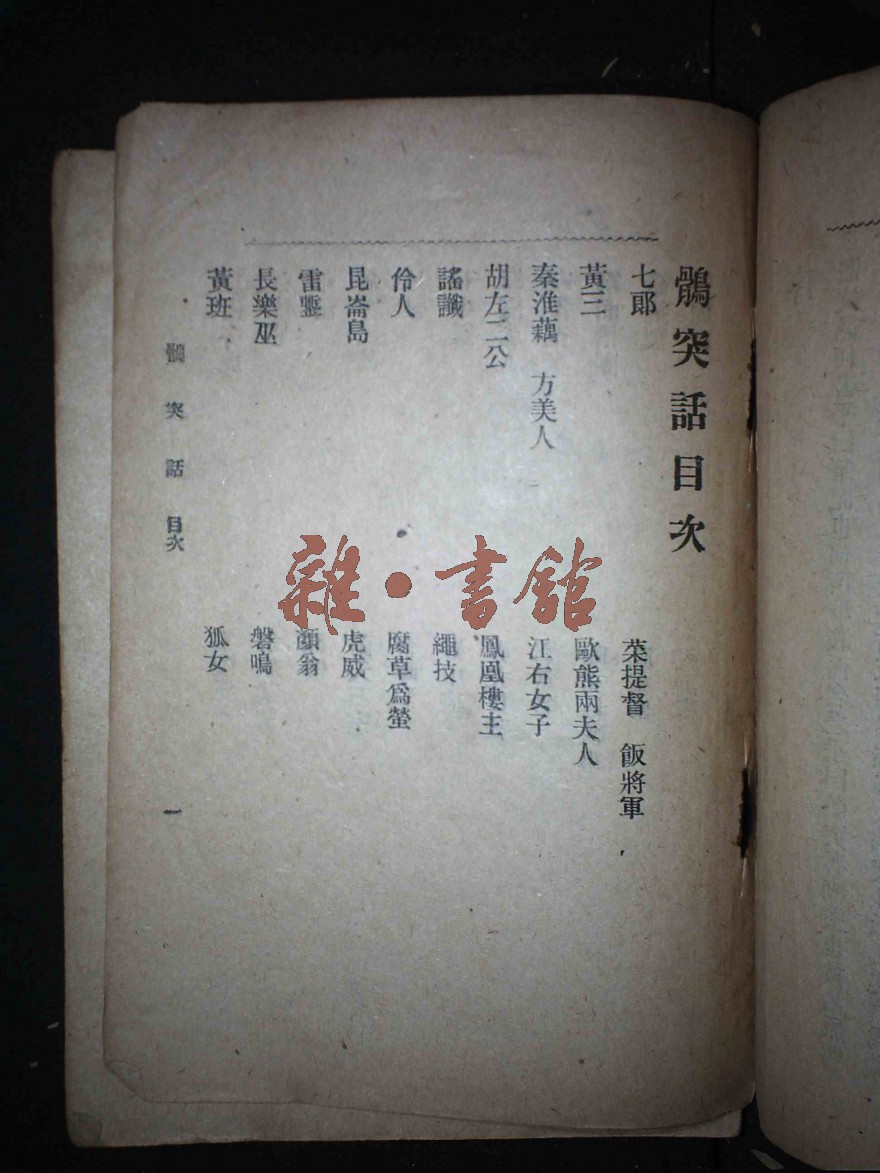 鶻突話目次
七郎
菜提督　飯將軍
黃三
歐熊兩夫人
秦淮藕　方美人
江右女子
胡左二公
鳳凰樓主
謠讖
繩技
伶人
腐草爲螢
昆崙島
虎威
雷
顏翁
長樂巫
磬鳴
黃班
狐女
鶻突話　目次
一
雜·書館